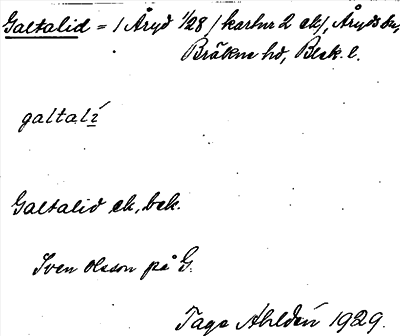 Galtalid = 1 Åryd 1/28 / kartnr 2 ek/, Åryds sn,
Bräkne hd, Blek. l.
galtalí
Galtalid ek, bek.
Sven Olsson på G.
Tage Ahldén 1929.